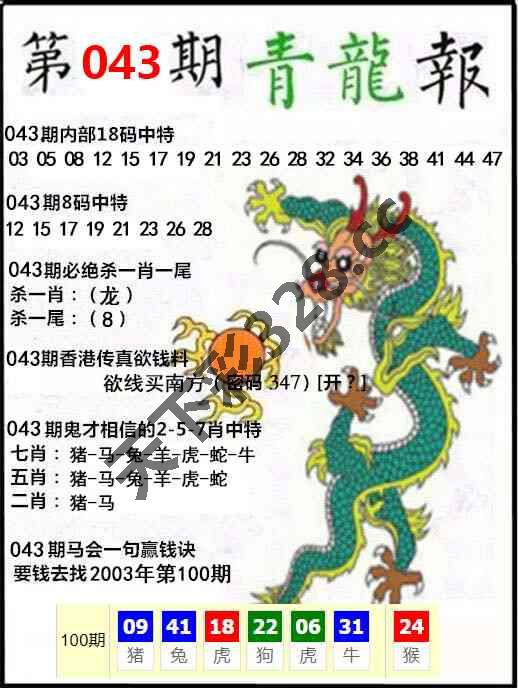 第043期青龍報
043期内部18码中特
03 05 08 12 15 17 19 21 23 26 28 32 34 36 38 41 44 47
043期8码中特
12 15 17 19 21 23 26 28
043期必绝杀一肖一尾
杀一肖：（龙）
杀一尾：（8）
043期香港传真欲钱料
欲线买南方（密码 347）[开？]
043期鬼才相信的2-5-7肖中特
七肖：猪-马-兔-羊-虎-蛇-牛
五肖：猪-马-兔-羊-虎-蛇
二肖：猪-马
043期马会一句赢钱诀
要钱去找2003年第100期
100期 09 41 18 22 06 31 24
猪 兔 虎 狗 虎 牛 猴
天下彩328.cc